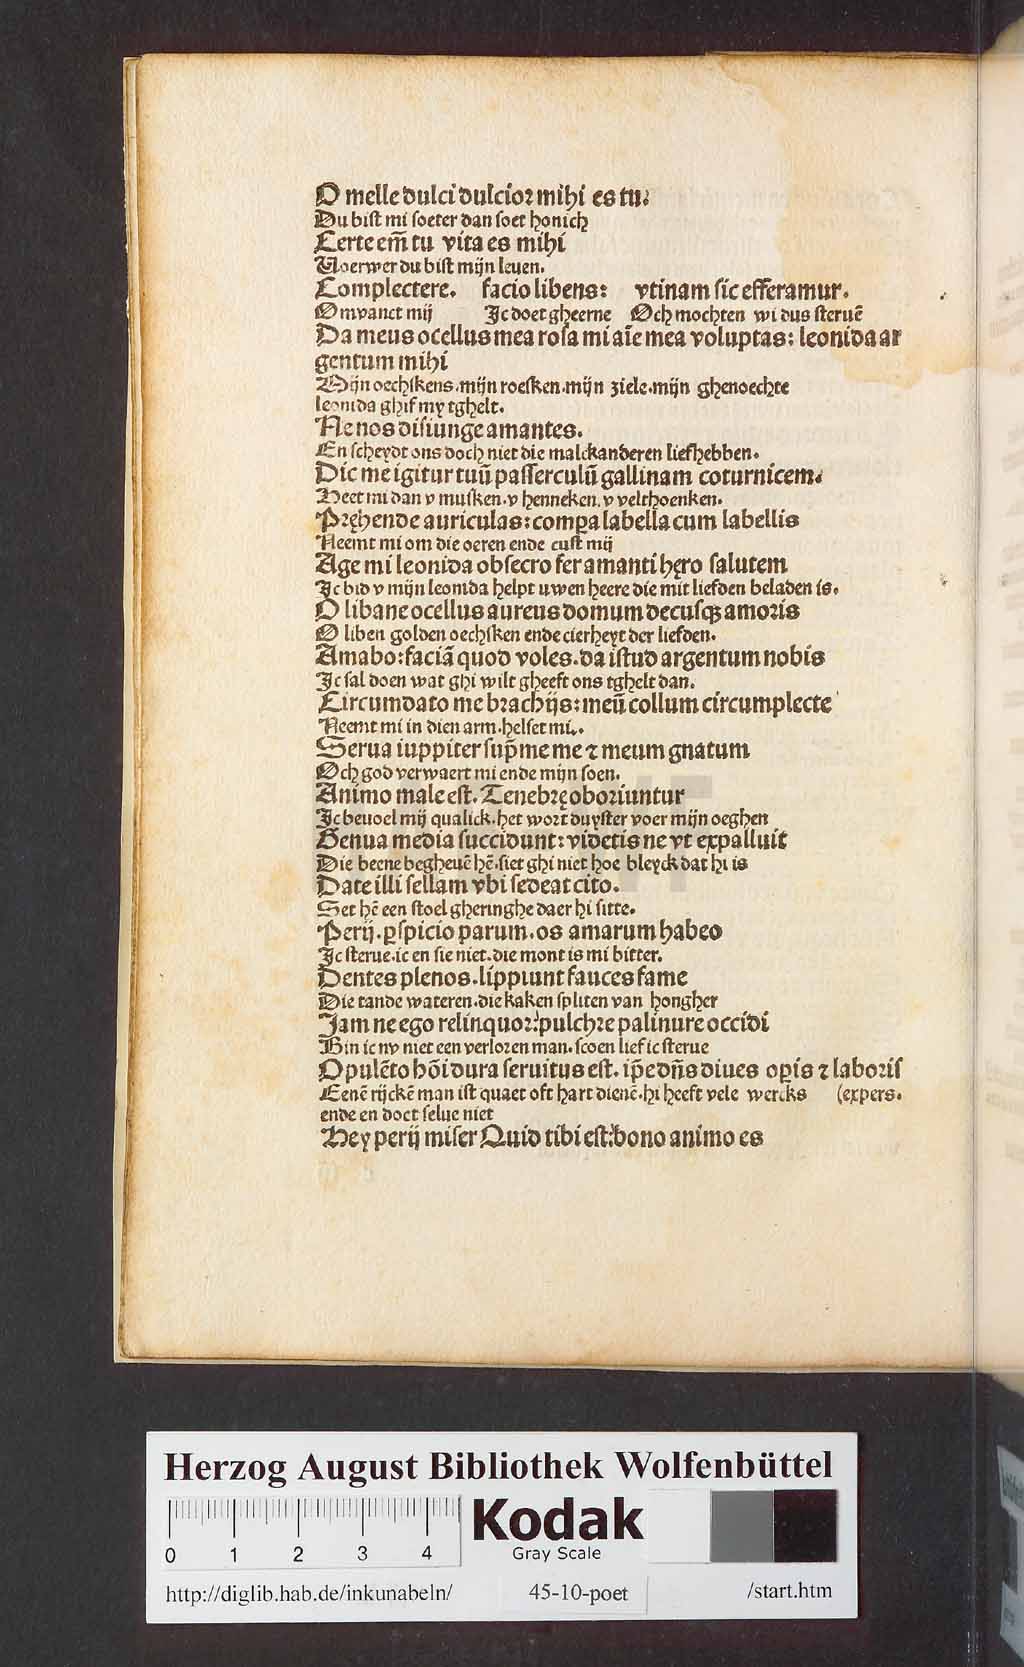 O melle dulci dulcior mihi es tu.
Du bist mi soeter dan soet honich
Certe em̄ tu vita es mihi
Voerwer du bist mijn leuen.
Complectere. facio libens: vtinam sic efferamur.
Omvanct mij Jc doet gheerne Och mochten wi dus steruē
Da meus ocellus mea rosa mi aīe mea voluptas: leonida ar
gentum mihi
Mijn oechskens.mijn roesken.mijn ziele.mijn ghenoechte
leonida ghif my tghelt.
Ne nos disiunge amantes.
En scheydt ons doch niet die malckanderen liefhebben.
Dic me igitur tuū passerculū gallinam coturnicem.
Heet mi dan v musken.v henneken.v velthoenken.
Pręhende auriculas: compa labella cum labellis
Neemt mi om die oeren ende cust mij
Age mi leonida obsecro fer amanti hęro salutem
Jc bid v mijn leonida helpt uwen heere die mit liefden beladen is.
O libane ocellus aureus domum decusqꝫ amoris
O liben golden oechsken ende cierheyt der liefden.
Amabo: faciā quod voles.da istud argentum nobis
Jc sal doen wat ghi wilt gheeft ons tghelt dan.
Circumdato me brachijs: meū collum circumplecte
Neemt mi in dien arm.helset mi.
Serua iuppiter sup̄me me ⁊ meum gnatum
Och god verwaert mi ende mijn soen.
Animo male est. Tenebrę oboriuntur
Jc beuoel mij qualick.het wort duyster voer mijn oeghen
Genua media succidunt: videtis ne vt expalluit
Die beene begheuē hē.siet ghi niet hoe bleyck dat hi is
Date illi sellam vbi sedeat cito.
Set hē een stoel gheringhe daer hi sitte.
Perij.ꝑspicio parum.os amarum habeo
Jc sterue.ic en sie niet.die mont is mi bitter.
Dentes plenos.lippiunt fauces fame
Die tande wateren.die kaken spliten van hongher
Jam ne ego relinquor: pulchre palinure occidi
Bin ic nv niet een verloren man.scoen lief ic sterue
Opulēto hōi dura seruitus est. ip̄e dn̄s diues opis ⁊ laboris
Eenē rijckē man ist quaet oft hart dienē.hi heeft vele wercks (expers.
ende en doet selue niet
Hey perij miser Quid tibi est: bono animo es
Herzog August Bibliothek Wolfenbüttel
0 1 2 3 4
Kodak
Gray Scale
http://diglib.hab.de/inkunabeln/ 45-10-poet /start.htm